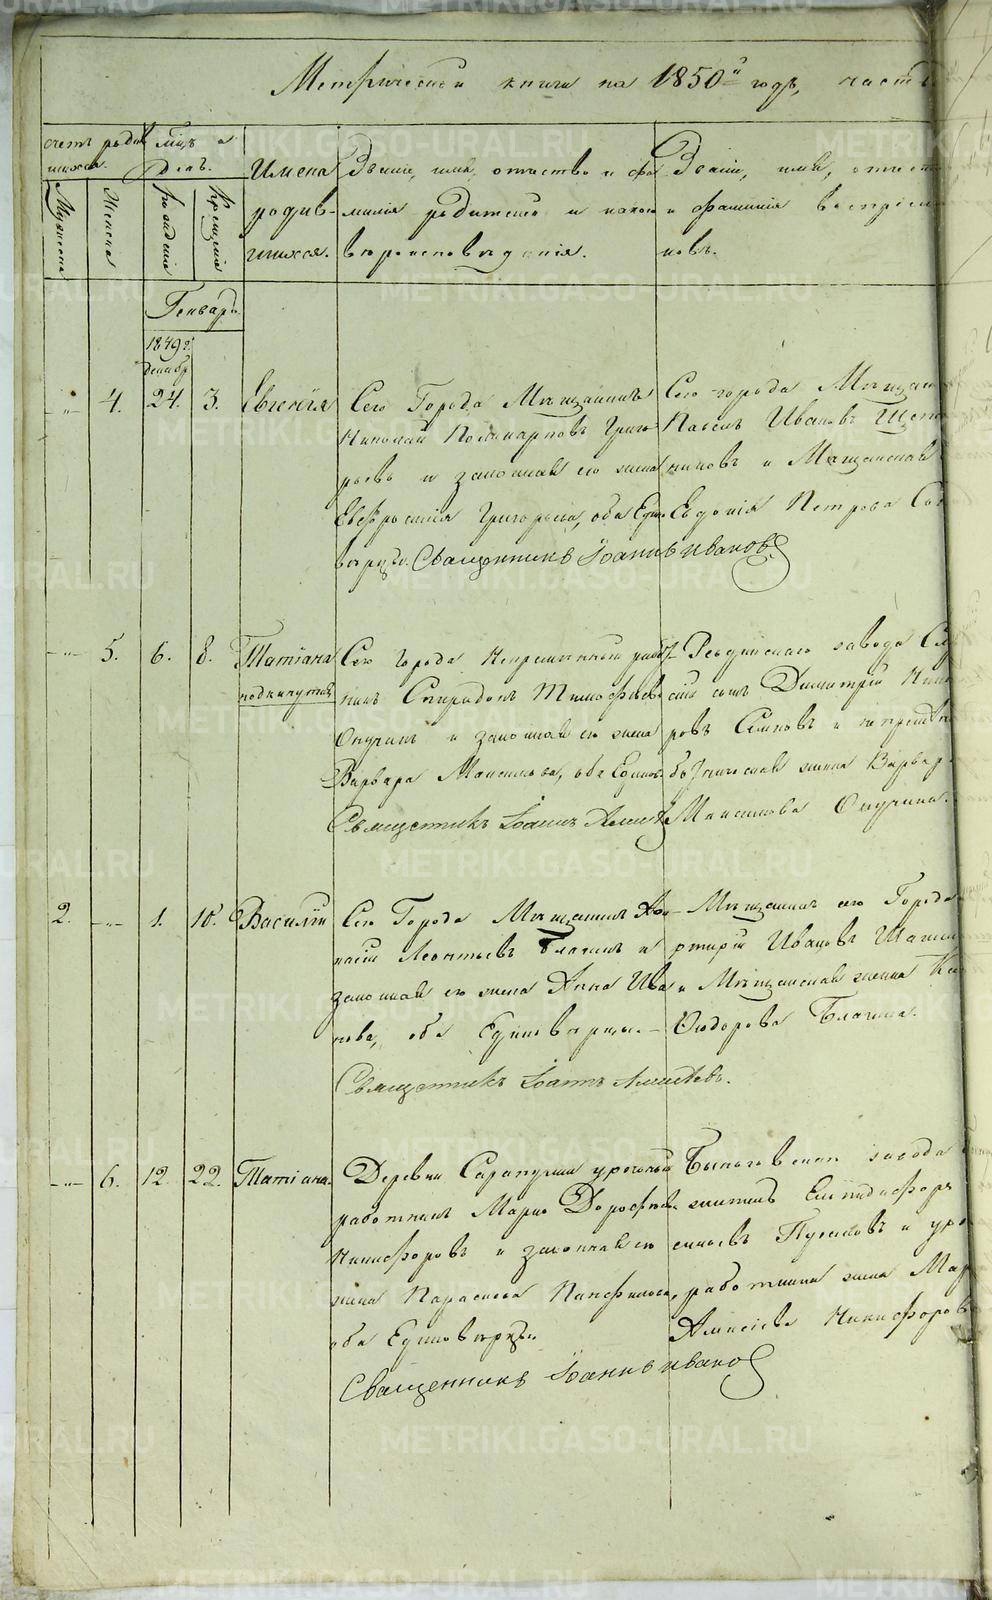 Метрической книги на 1850й годъ, часть
счетъ родив
шихся.
Мѣц и
день.
Мужеска
Женска
рожденія
крещенія
Имена
родив-
шихся.
Званіе, имя, отчество и фа
милія родителей и какого
вѣроисповѣданія.
Званіе, имя, отчест
и фамилія воспріем
никовъ.
Генварь
1849 г.
декабр
4. 24. 3. Евгенія
Сего Города Мѣщанинъ
Николай Поликарповъ Григо
рьевъ и законная его жена
Евфросинія Григорьева, оба Едино
вѣрцы. Священникъ Іоаннъ Иванов
Сего города Мѣщан
Иванов
никовъ и Мѣщанская
Евдокія Петрова
5. 6. 8. Татіана
подкинутая
Сего Города Непремѣнный работ
никъ Спиридонъ Тимофѣевъ
Опучин и законная его жена
Варвара Максимова, оба Единов
Священникъ Іоаннъ Алексѣев
Ревдинскаго завода
сынъ Димитрій
ровъ и непремѣн
жена Варвар
Максимова Опучина.
2. 1. 10. Василій
Сего Города Мѣщанинъ Афа
насій Леонтьевъ Благинъ и
законная его жена Анна Ива
нова, оба Единовѣрцы.
Священникъ Іоаннъ Алексѣевъ.
Мѣщанинъ сего Города
Ивановъ
и Мѣщанская жена
Ѳедорова Благина.
6. 12. 22. Татіана.
Деревни Сарапулки урочный
работникъ Марко Дорофѣев
Никифоровъ и законная его
жена Параскева Панфилова,
оба Единовѣрцы
Священникъ Іоаннъ Иванов
завода
житель Елпидифоръ
и уро
работника жена Мар
Алексѣева Никифоров
METRIKI.GASO-URAL.RU